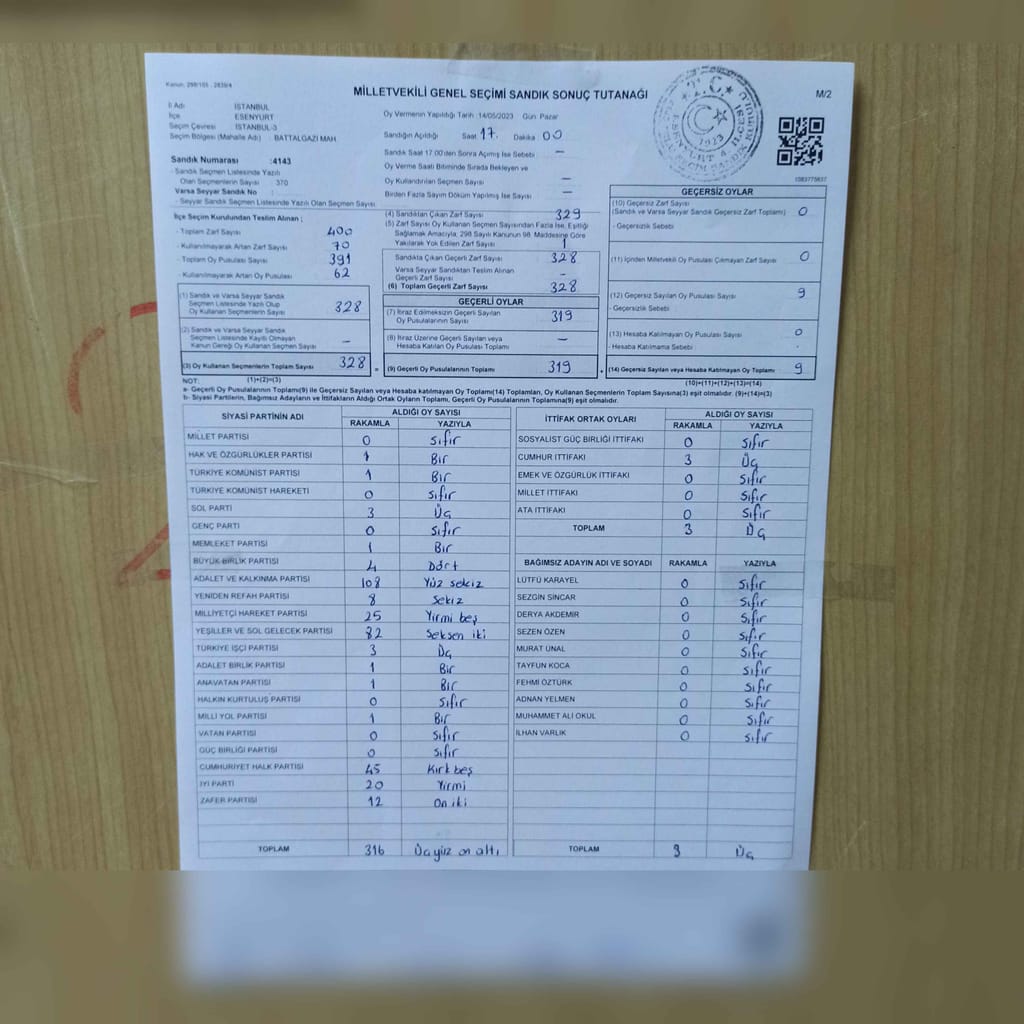 Kanun: 298/105 - 2839/4
MİLLETVEKİLİ GENEL SEÇİMİ SANDIK SONUÇ TUTANAĞI
M/2
İl Adı İSTANBUL
İlçe ESENYURT
Seçim Çevresi İSTANBUL-3
Seçim Bölgesi (Mahalle Adı) BATTALGAZİ MAH.
Sandık Numarası :4143
- Sandık Seçmen Listesinde Yazılı
Olan Seçmenlerin Sayısı : 370
Varsa Seyyar Sandık No :
- Seyyar Sandık Seçmen Listesinde Yazılı Olan Seçmen Sayısı
İlçe Seçim Kurulundan Teslim Alınan ;
- Toplam Zarf Sayısı 400
- Kullanılmayarak Artan Zarf Sayısı 70
- Toplam Oy Pusulası Sayısı 391
- Kullanılmayarak Artan Oy Pusulası 62
(1) Sandık ve Varsa Seyyar Sandık
Seçmen Listesinde Yazılı Olup
Oy Kullanan Seçmenlerin Sayısı 328
(2) Sandık ve Varsa Seyyar Sandık
Seçmen Listesinde Kayıtlı Olmayan
Kanun Gereği Oy Kullanan Seçmen Sayısı –
(3) Oy Kullanan Seçmenlerin Toplam Sayısı 328
(1)+(2)=(3)
Oy Vermenin Yapıldığı Tarih 14/05/2023 Gün Pazar
Sandığın Açıldığı Saat 17. Dakika 00
Sandık Saat 17:00'den Sonra Açılmış İse Sebebi –
Oy Verme Saati Bitiminde Sırada Bekleyen ve
Oy Kullandırılan Seçmen Sayısı –
Birden Fazla Sayım Döküm Yapılmış İse Sayısı –
(4) Sandıktan Çıkan Zarf Sayısı 329
(5) Zarf Sayısı Oy Kullanan Seçmen Sayısından Fazla İse, Eşitliği
Sağlamak Amacıyla, 298 Sayılı Kanunun 98. Maddesine Göre
Yakılarak Yok Edilen Zarf Sayısı 1
Sandıkta Çıkan Geçerli Zarf Sayısı 328
Varsa Seyyar Sandıktan Teslim Alınan
Geçerli Zarf Sayısı –
(6) Toplam Geçerli Zarf Sayısı 328
GEÇERLİ OYLAR
(7) İtiraz Edilmeksizin Geçerli Sayılan
Oy Pusulalarının Sayısı 319
(8) İtiraz Üzerine Geçerli Sayılan veya
Hesaba Katılan Oy Pusulası Toplamı –
(9) Geçerli Oy Pusulalarının Toplamı 319
T.C.
1923
1583775637
GEÇERSİZ OYLAR
(10) Geçersiz Zarf Sayısı
(Sandık ve Varsa Seyyar Sandık Geçersiz Zarf Toplamı) 0
- Geçersizlik Sebebi
(11) İçinden Milletvekili Oy Pusulası Çıkmayan Zarf Sayısı 0
(12) Geçersiz Sayılan Oy Pusulası Sayısı 9
- Geçersizlik Sebebi
(13) Hesaba Katılmayan Oy Pusulası Sayısı 0
- Hesaba Katılmama Sebebi
(14) Geçersiz Sayılan veya Hesaba Katılmayan Oy Toplamı 9
(10)+(11)+(12)+(13)=(14)
NOT:
a- Geçerli Oy Pusulalarının Toplamı(9) ile Geçersiz Sayılan veya Hesaba katılmayan Oy Toplam(14) Toplamları, Oy Kullanan Seçmenlerin Toplam Sayısına(3) eşit olmalıdır. (9)+(14)=(3)
b- Siyasi Partilerin, Bağımsız Adayların ve İttifakların Aldığı Ortak Oyların Toplamı, Geçerli Oy Pusulalarının Toplamına(9) eşit olmalıdır.
SİYASİ PARTİNİN ADI ALDIĞI OY SAYISI
RAKAMLA YAZIYLA
MİLLET PARTİSİ 0 Sıfır
HAK VE ÖZGÜRLÜKLER PARTİSİ 1 Bir
TÜRKİYE KOMÜNİST PARTİSİ 1 Bir
TÜRKİYE KOMÜNİST HAREKETİ 0 Sıfır
SOL PARTİ 3 Üç
GENÇ PARTİ 0 Sıfır
MEMLEKET PARTİSİ 1 Bir
BÜYÜK BİRLİK PARTİSİ 4 Dört
ADALET VE KALKINMA PARTİSİ 108 Yüz sekiz
YENİDEN REFAH PARTİSİ 8 Sekiz
MİLLİYETÇİ HAREKET PARTİSİ 25 Yirmi beş
YEŞİLLER VE SOL GELECEK PARTİSİ 82 Seksen iki
TÜRKİYE İŞÇİ PARTİSİ 3 Üç
ADALET BİRLİK PARTİSİ 1 Bir
ANAVATAN PARTİSİ 1 Bir
HALKIN KURTULUŞ PARTİSİ 0 Sıfır
MİLLİ YOL PARTİSİ 1 Bir
VATAN PARTİSİ 0 Sıfır
GÜÇ BİRLİĞİ PARTİSİ 0 Sıfır
CUMHURİYET HALK PARTİSİ 45 Kırk beş
İYİ PARTİ 20 Yirmi
ZAFER PARTİSİ 12 On iki
TOPLAM 316 Üçyüz on altı
İTTİFAK ORTAK OYLARI ALDIĞI OY SAYISI
RAKAMLA YAZIYLA
SOSYALİST GÜÇ BİRLİĞİ İTTİFAKI 0 Sıfır
CUMHUR İTTİFAKI 3 Üç
EMEK VE ÖZGÜRLÜK İTTİFAKI 0 Sıfır
MİLLET İTTİFAKI 0 Sıfır
ATA İTTİFAKI 0 Sıfır
TOPLAM 3 Üç
BAĞIMSIZ ADAYIN ADI VE SOYADI RAKAMLA YAZIYLA
LÜTFÜ KARAYEL 0 Sıfır
SEZGİN SİNCAR 0 Sıfır
DERYA AKDEMİR 0 Sıfır
SEZEN ÖZEN 0 Sıfır
MURAT ÜNAL 0 Sıfır
TAYFUN KOCA 0 Sıfır
FEHMİ ÖZTÜRK 0 Sıfır
ADNAN YELMEN 0 Sıfır
MUHAMMET ALİ OKUL 0 Sıfır
İLHAN VARLIK 0 Sıfır
TOPLAM 3 Üç